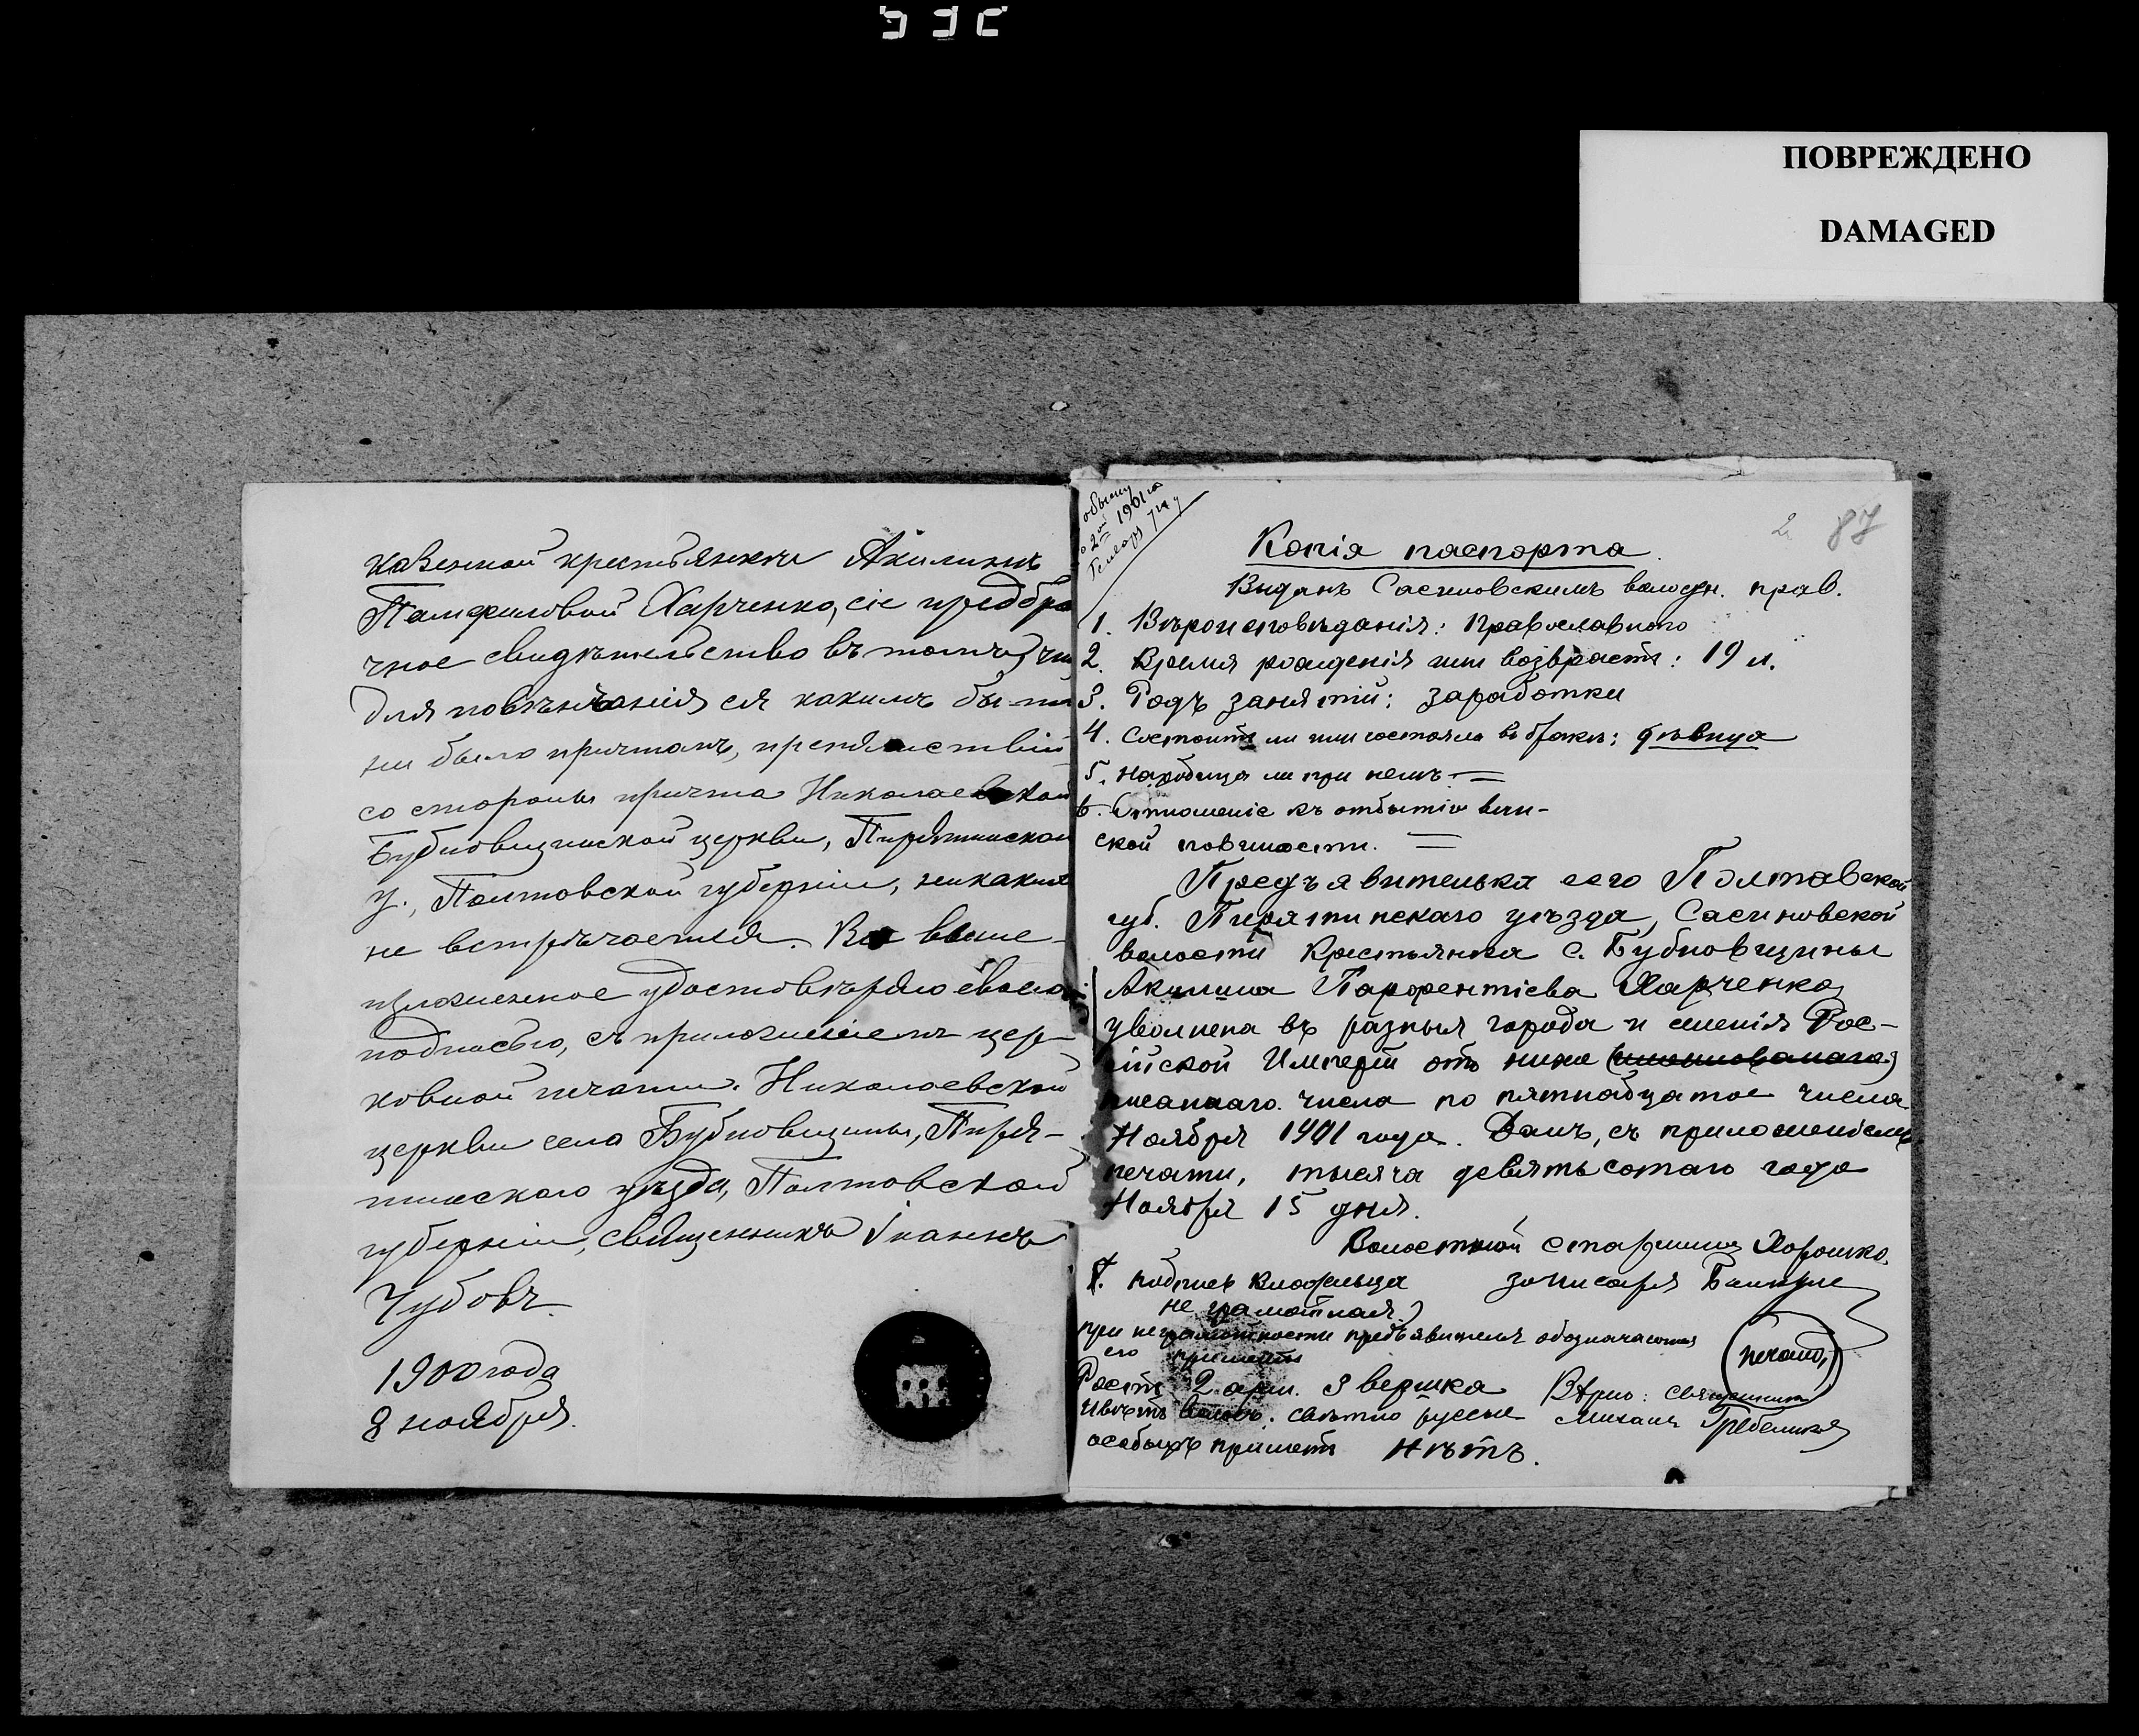 ПОВРЕЖДЕНО
DAMAGED
казенной крестьянки Акилины
Памфиловой Харченко, сіе предбра
чное свидѣтельство въ томъ, что
для повѣнчанія ея какихъ бы то
ни было причтомъ, препятствій
со стороны причта Николаевской
Бубновщинской церкви, Пирятинскаго
у., Полтовской губерніи, никакихъ
не встрѣчается. Все выше-
изложенное удостовѣряю своею
подписью, съ приложеніемъ цер-
ковной печати. Николаевской
церкви села Бубновщины, Пиря-
тинскаго уѣзда, Полтовской
губерніи, священникъ Іоаннъ
Чубовъ
1900 года
8 ноября.
обыску
2ой 1901го
Генваря
2 87
Копія паспорта.
Выданъ Сасиновскимъ волостн. прав.
1. Вѣроисповѣданія: Православного
2. Время рожденія или возврастъ: 19 л.
3. Родъ занятій: заработки
4. Состоитъ ли или состояла въ бракѣ: дѣвица
5. находица ли при немъ =
6. Отношеніе къ отбытію воин-
ской повинности. =
Предъявителька сего Полтавской
губ. Пирятинскаго уѣзда, Сасиновской
волости Крестьянка с. Бубновщины
Акилина Парфентіева Харченко
уволнена въ разныя города и селенія Рос-
сійской Имперіи отъ ниже
писаннаго числа по пятнадцатое числа
Ноября 1901 года. Данъ, съ приложеніемъ
печати, тысяча девятьсотаго года
Ноября 15 дня.
Волостной старшина Хорошко.
7. подпись владельца за писаря
не грамотная)
при неграмотности предъявителя обозначаются
его приметы (печать)
Ростъ 2 арш. 3 вершка Вѣрно: священникъ
Цвѣтъ волосъ: свѣтло русые Михаилъ
особыхъ приметъ нѣтъ.